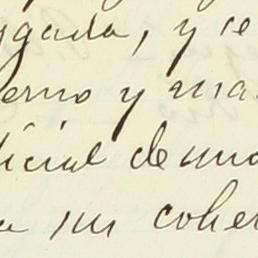 gada, y se
erno y ma
icial de una
un cohe